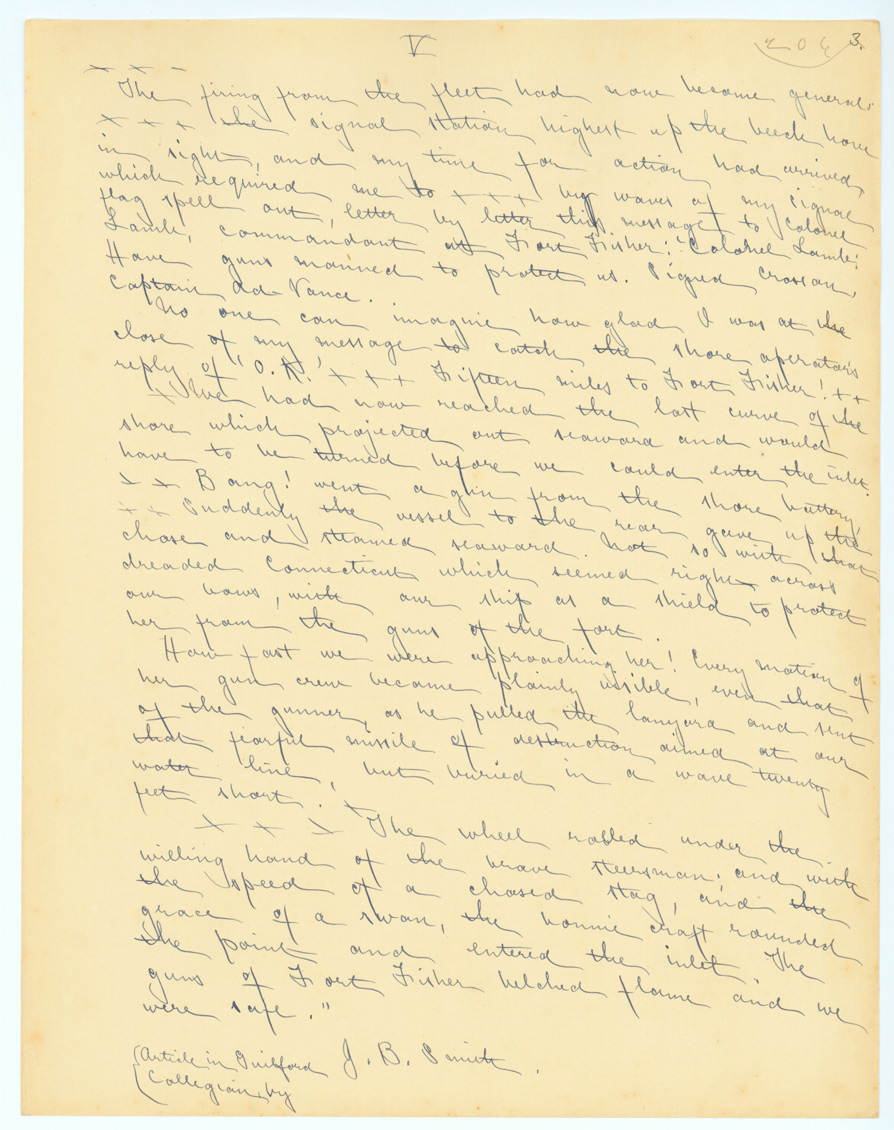 V
204 3.
x x –
The firing from the fleet had now become general.
x x x the signal station highest up the beech hove
in sight, and my time for action had arrived,
which required me to x x x by waves of my signal
flag spell out, letter by letter this message to Colonel
Lamb, commandant at Fort Fisher: "Colonel Lamb:
Have guns manned to protect us. Signed Crossan,
Captain Ad-Vance.
No one can imagine how glad I was at the
close of my message to catch the shore operator's
reply of 'O.K.' x x x Fifteen miles to Fort Fisher! x x
x We had now reached the last curve of the
shore which projected out seaward and would
have to be turned before we could enter the inlet.
x x Bang! went a gun from the shore battery,
x x Suddenly the vessel to the rear gave up the
chase and steamed seaward. Not so with that
dreaded Connecticut which seemed right across
our bows, with our ship as a shield to protect
her from the guns of the fort.
How fast we were approaching her! Every motion of
her gun crew became plainly visible, even that
of the gunner, as he pulled the lanyard and sent
that fearful missile of destruction aimed at our
water line, but buried in a wave twenty
feet short. x
x x x The wheel rolled under the
willing hand of the brave steersman. and with
the speed of a chased stag, and the
grace of a swan, the bonnie craft rounded
the point and entered the inlet. The
guns of Fort Fisher belched flame and we
were safe."
(Article in Guilford J. B. Smith.
(Collegian, by